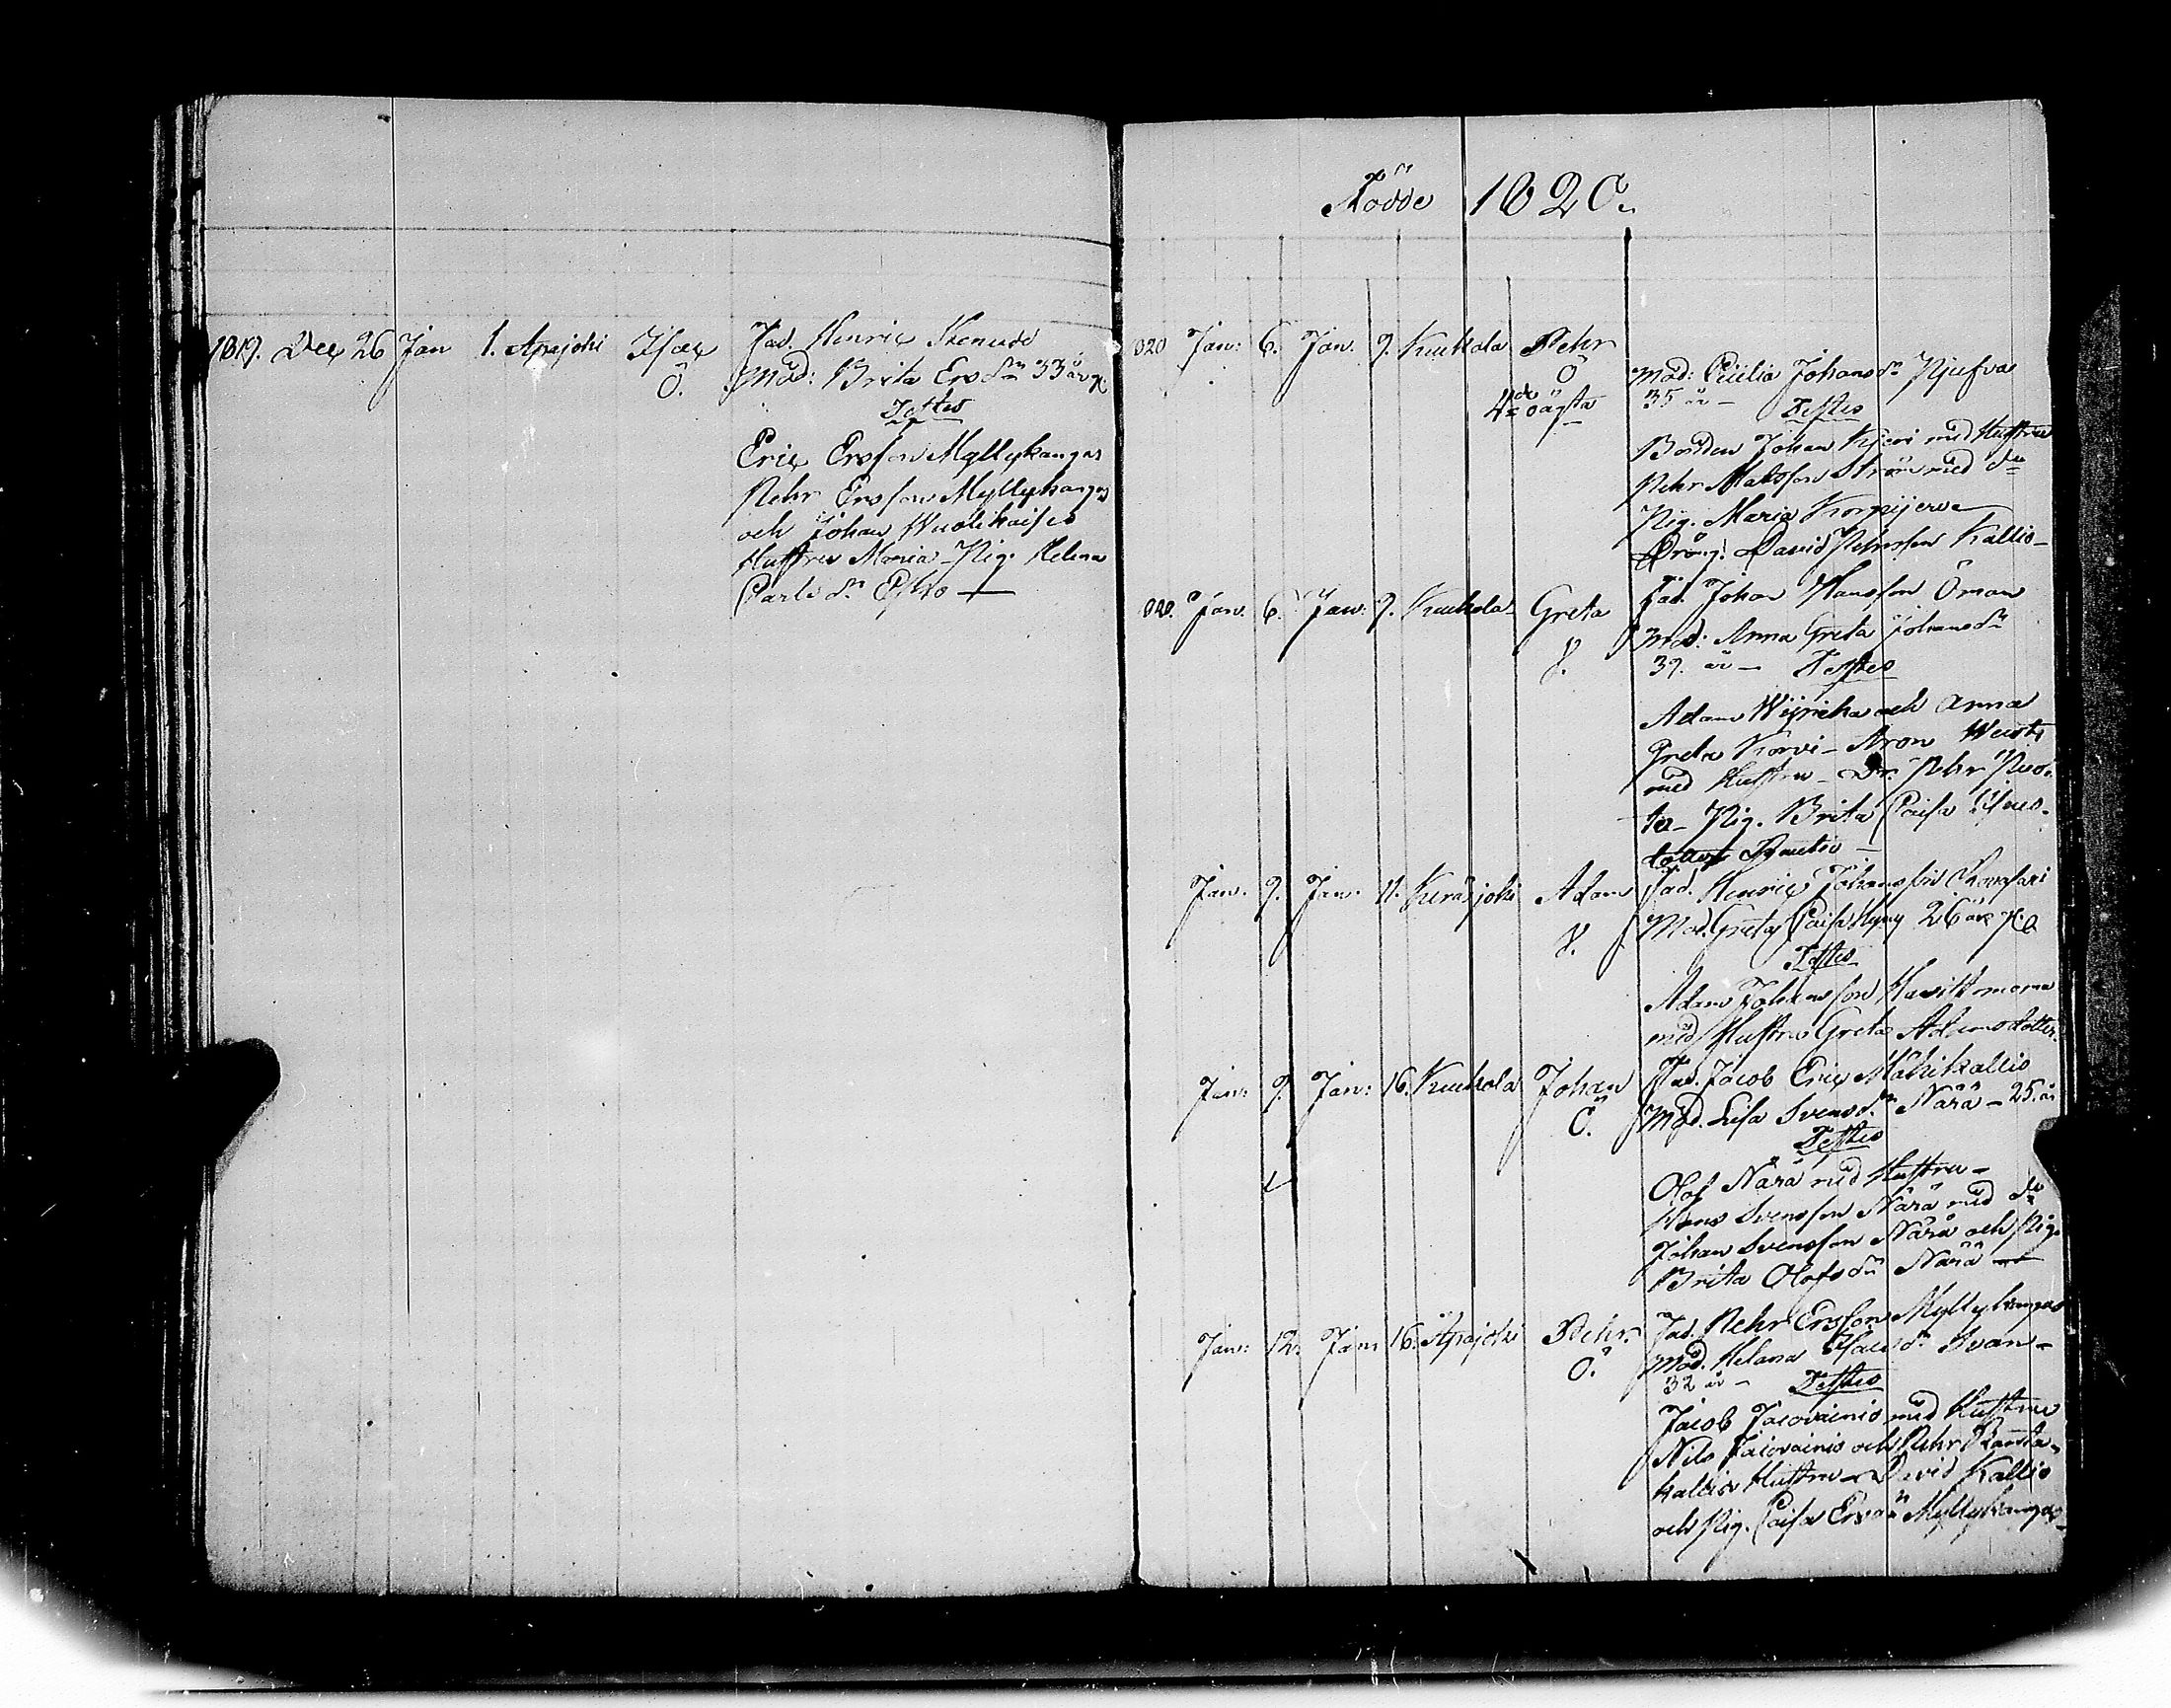 1819. Dec 26 Jan 1. Apajoki Isac Fad. Henric
Ö. Mod: Brita Ersdr 33 år
Testes
Eric Ersson Myllykangas
Pehr Ersson Myllykangas
och Johan
Hustru Maria - Pig. Helena
Carlsdr Esko
Födde 1820.
820 Jan: 6. Jan. 9. Kuckola Pehr
Ö Mod: Cecilia Johansdr
4de oägta 35 år - Testes
Bonden Johan med Hustru
Pehr Matsson Ström med do
Pig. Maria Korpijerva
Dräng. David Pehrsson Kallio
820. Jan. 6. Jan: 9. Kuckola Greta Fad. Johan Hansson Öman
Y. Mod: Anna Greta Johansdr
39. år - Testes
Adam och Anna
Greta Korvi - Aron
med Hustru - Dr. Pehr Ruo-
ta - Pig. Brita Caisa
dotter
Jan. 9. Jan. 11. Keräsjoki Adam Fad. Henric Johansson
Y. Mod. Greta Caisa 26 år
Testes
Adam Johansson
med Hustru Greta Adamsdotter.
Jan: 9. Jan: 16. Kuckola Johan Fad. Jacob Eric Mäkikallio
Ö. Mod. Lisa Svensdr Närä - 25. år
Testes
Olof Närä med Hustru -
Hans Svensson Närä med do
Johan Svensson Närä och Pig.
Brita Olofsdr Närä
Jan: 12. Jan: 16. Apajoki Pehr. Fad. Pehr Ersson Myllykangas
Ö. Mod. Helena Isacsdr Svan -
32 år - Testes
Jacob Jacovainio med Hustru
Nils Jacovainio och Pehr Ranta-
kallio Hustru - David Kallio
och Pig. Caisa Ersdr Myllykangas